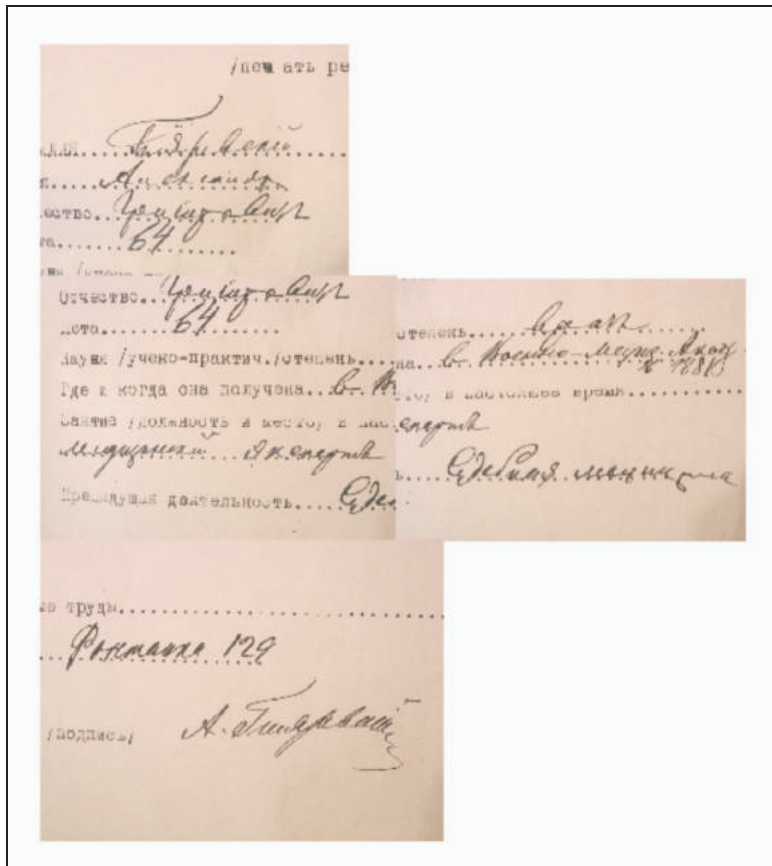 /печать ре
илия.... Гвярвский
я.... Александр
ество... Григорьевич
та....... 64 ........
Отчество... Григорьевич
Лета....... 64 ........
Науки /учено-практич./степень....
Где и когда она получена... в В
Занятие /должность и место/ в нас
медицинский эксперт
Предидущая деятельность..... Суде
степень...... врач ......
на.. в Военно-Медиц. Акад
в 188
то/ в настоящее время............
эксперт
ь... Судебная медицина
ые труды................................
... Фонтанка 129
/подпись/